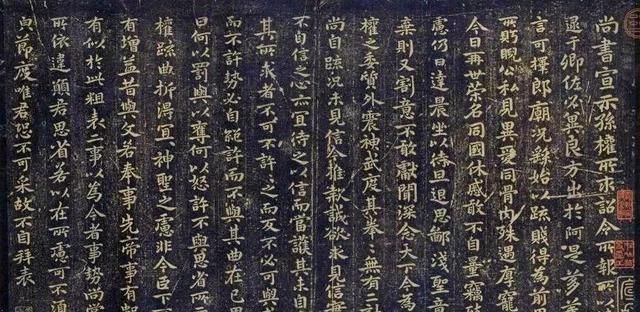 尚書宣示孫權所求詔令所報所以
逮于卿佐必冀良方出於阿是芻
言可擇郎廟況繇始以疏賤得為前
所眄睨公私見異愛同骨肉殊遇厚寵
今日再世榮名同國休慼敢不自量竊
慮仍日達晨坐以待旦退思鄙淺聖意
棄則又割意不敢獻聞深念天下今為
權之委質外震神武度其拳〻無有二
尚自疏況未見信今推款誠欲求見信
不自信之心亦宜待之以信而當護其未自
其所求者不可不許許之而反不必可與
而不許勢必自絕許而不與其曲在己
曰何以罰與以奪何以怒許不與思省所
權疏曲折得宜神聖之慮非今臣下
有增益昔與文若奉事先帝事有
有似於此粗表二事以為今者事勢尚當
所依違願君思省若以在所慮可不須
皃節度唯君恐不可采故不自拜表